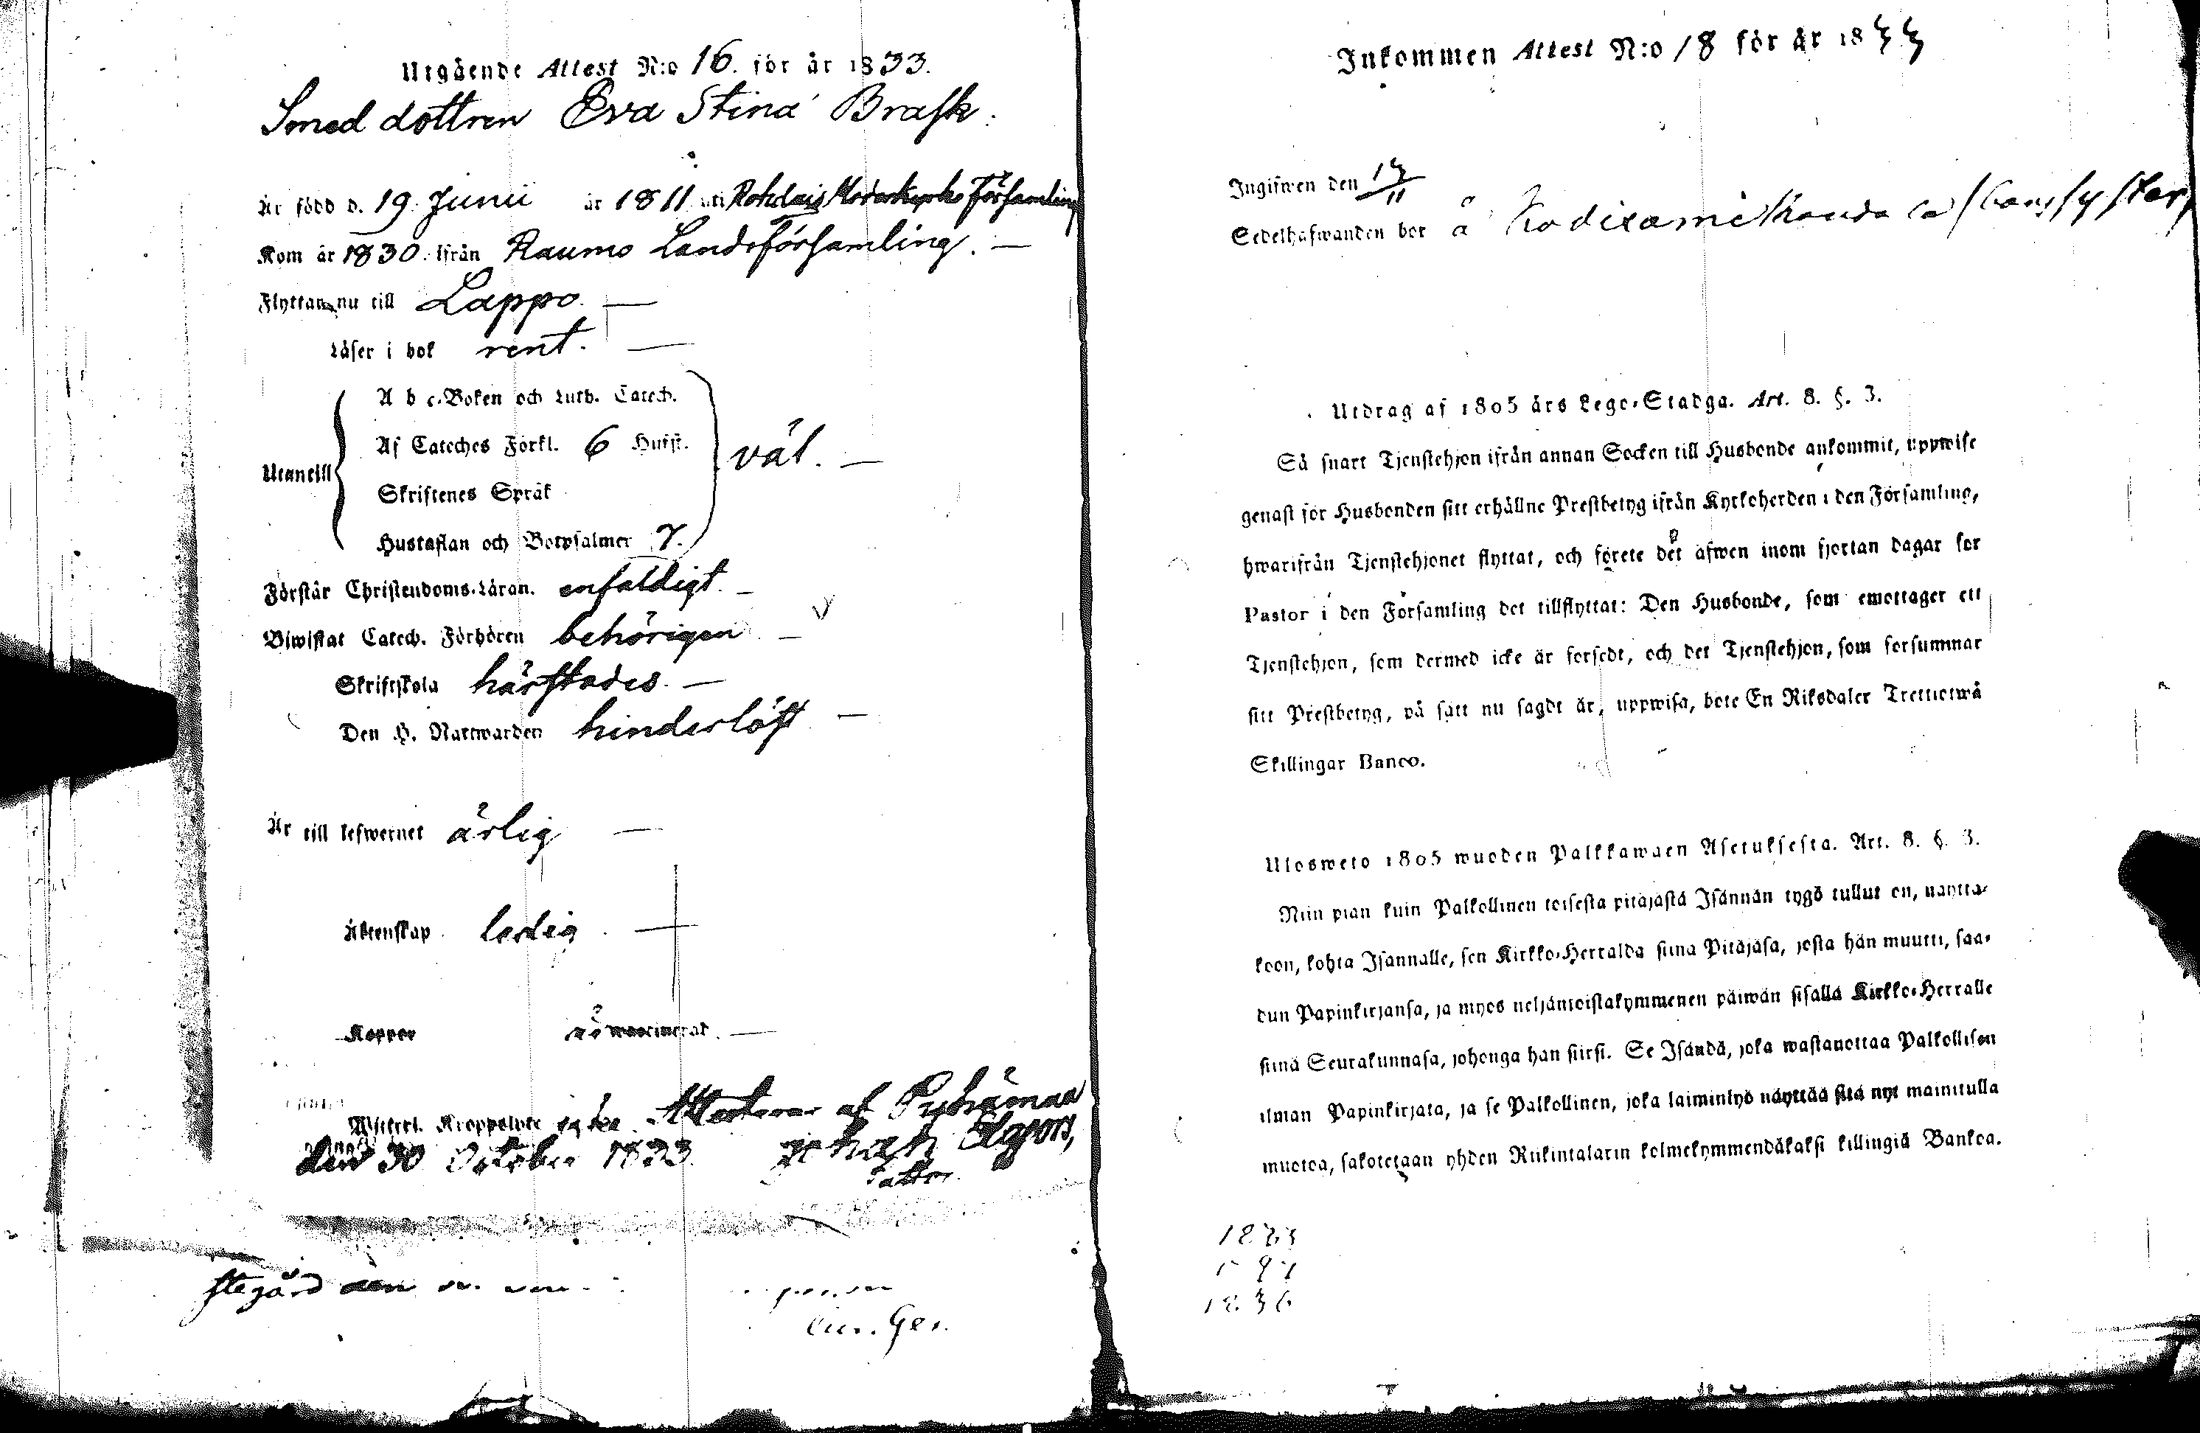 Utgående Attest N:o 16. för år 1833.
Smed dottren Eva Stina Brask.
Är född d. 19 Junii år 1811 uti Moderkyrko Församling
Kom år 1830. ifrån Raumo Landsförsamling. —
Flyttar nu till Lappo. —
Läser i bok rent. —
Utantill
A b c-Boken och Luth. Catech.
Af Cateches Förkl. 6 Hufst.
väl. —
Skriftenes Språk
Hustaflan och Botpsalmer 7.
Förstår Christendoms-Läran. enfaldigt. —
Biwistat Catech. Förhören behörigen —
Skriftskola härstädes. —
Den H. Nattwarden hinderlöst —
Är till lefwernet ärlig —
Äktenskap ledig. —
Koppor vaccinerad. —
Wiskerl. Attesterar af Pyhämaa
den 30 October 1833. Johan
Pastor.
Inkommen Attest N:o 18 för år 1833
Ingifwen den 13/11
Sedelhafwanden bor å
Utdrag af 1805 års Lego-Stadga. Art. 8. §. 3.
Så snart Tjenstehjon ifrån annan Socken till Husbonde ankommit, uppwise
genast för Husbonden sitt erhållne Prestbetyg ifrån Kyrkoherden i den Församling,
hwarifrån Tjenstehjonet flyttat, och förete det äfwen inom fjortan dagar för
Pastor i den Församling det tillflyttat: Den Husbonde, som emottager ett
Tjenstehjon, som dermed icke är försedt, och det Tjenstehjon, som försummar
sitt Prestbetyg, på sätt nu sagdt är, uppwisa, böte En Riksdaler Trettiotwå
Skillingar Banco.
Ulosweto 1805 wuoden Palkkawäen Asetuksesta. Art. 8. §. 3.
Niin pian kuin Palkollinen toisesta pitäjästä Isännän tygö tullut on, näyttä-
köön, kohta Isännälle, sen Kirkko-Herralda siinä Pitäjäsä, josta hän muutti, saa-
dun Papinkirjansa, ja myös neljäntoistakymmenen päiwän sisällä Kirkko-Herralle
siinä Seurakunnasa, johonga hän siirsi. Se Isändä, joka wastanottaa Palkollisen
ilman Papinkirjata, ja se Palkollinen, joka laiminlyö näyttää sitä nyt mainitulla
muotoa, sakotetaan yhden Riikintalarin kolmekymmendäkaksi killingiä Bankoa.
1836